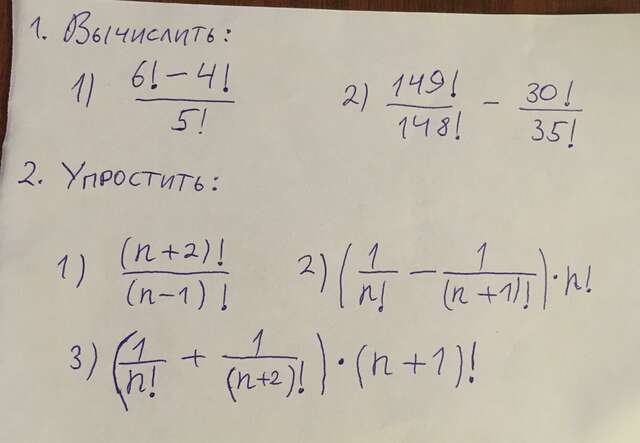 1. Вычислить:
1) (6! − 4!)/5! 2) 149!/148! − 30!/35!
2. Упростить:
1) (n+2)!/(n−1)! 2) (1/n! − 1/(n+1)!)·n!
3) (1/n! + 1/(n+2)!)·(n+1)!